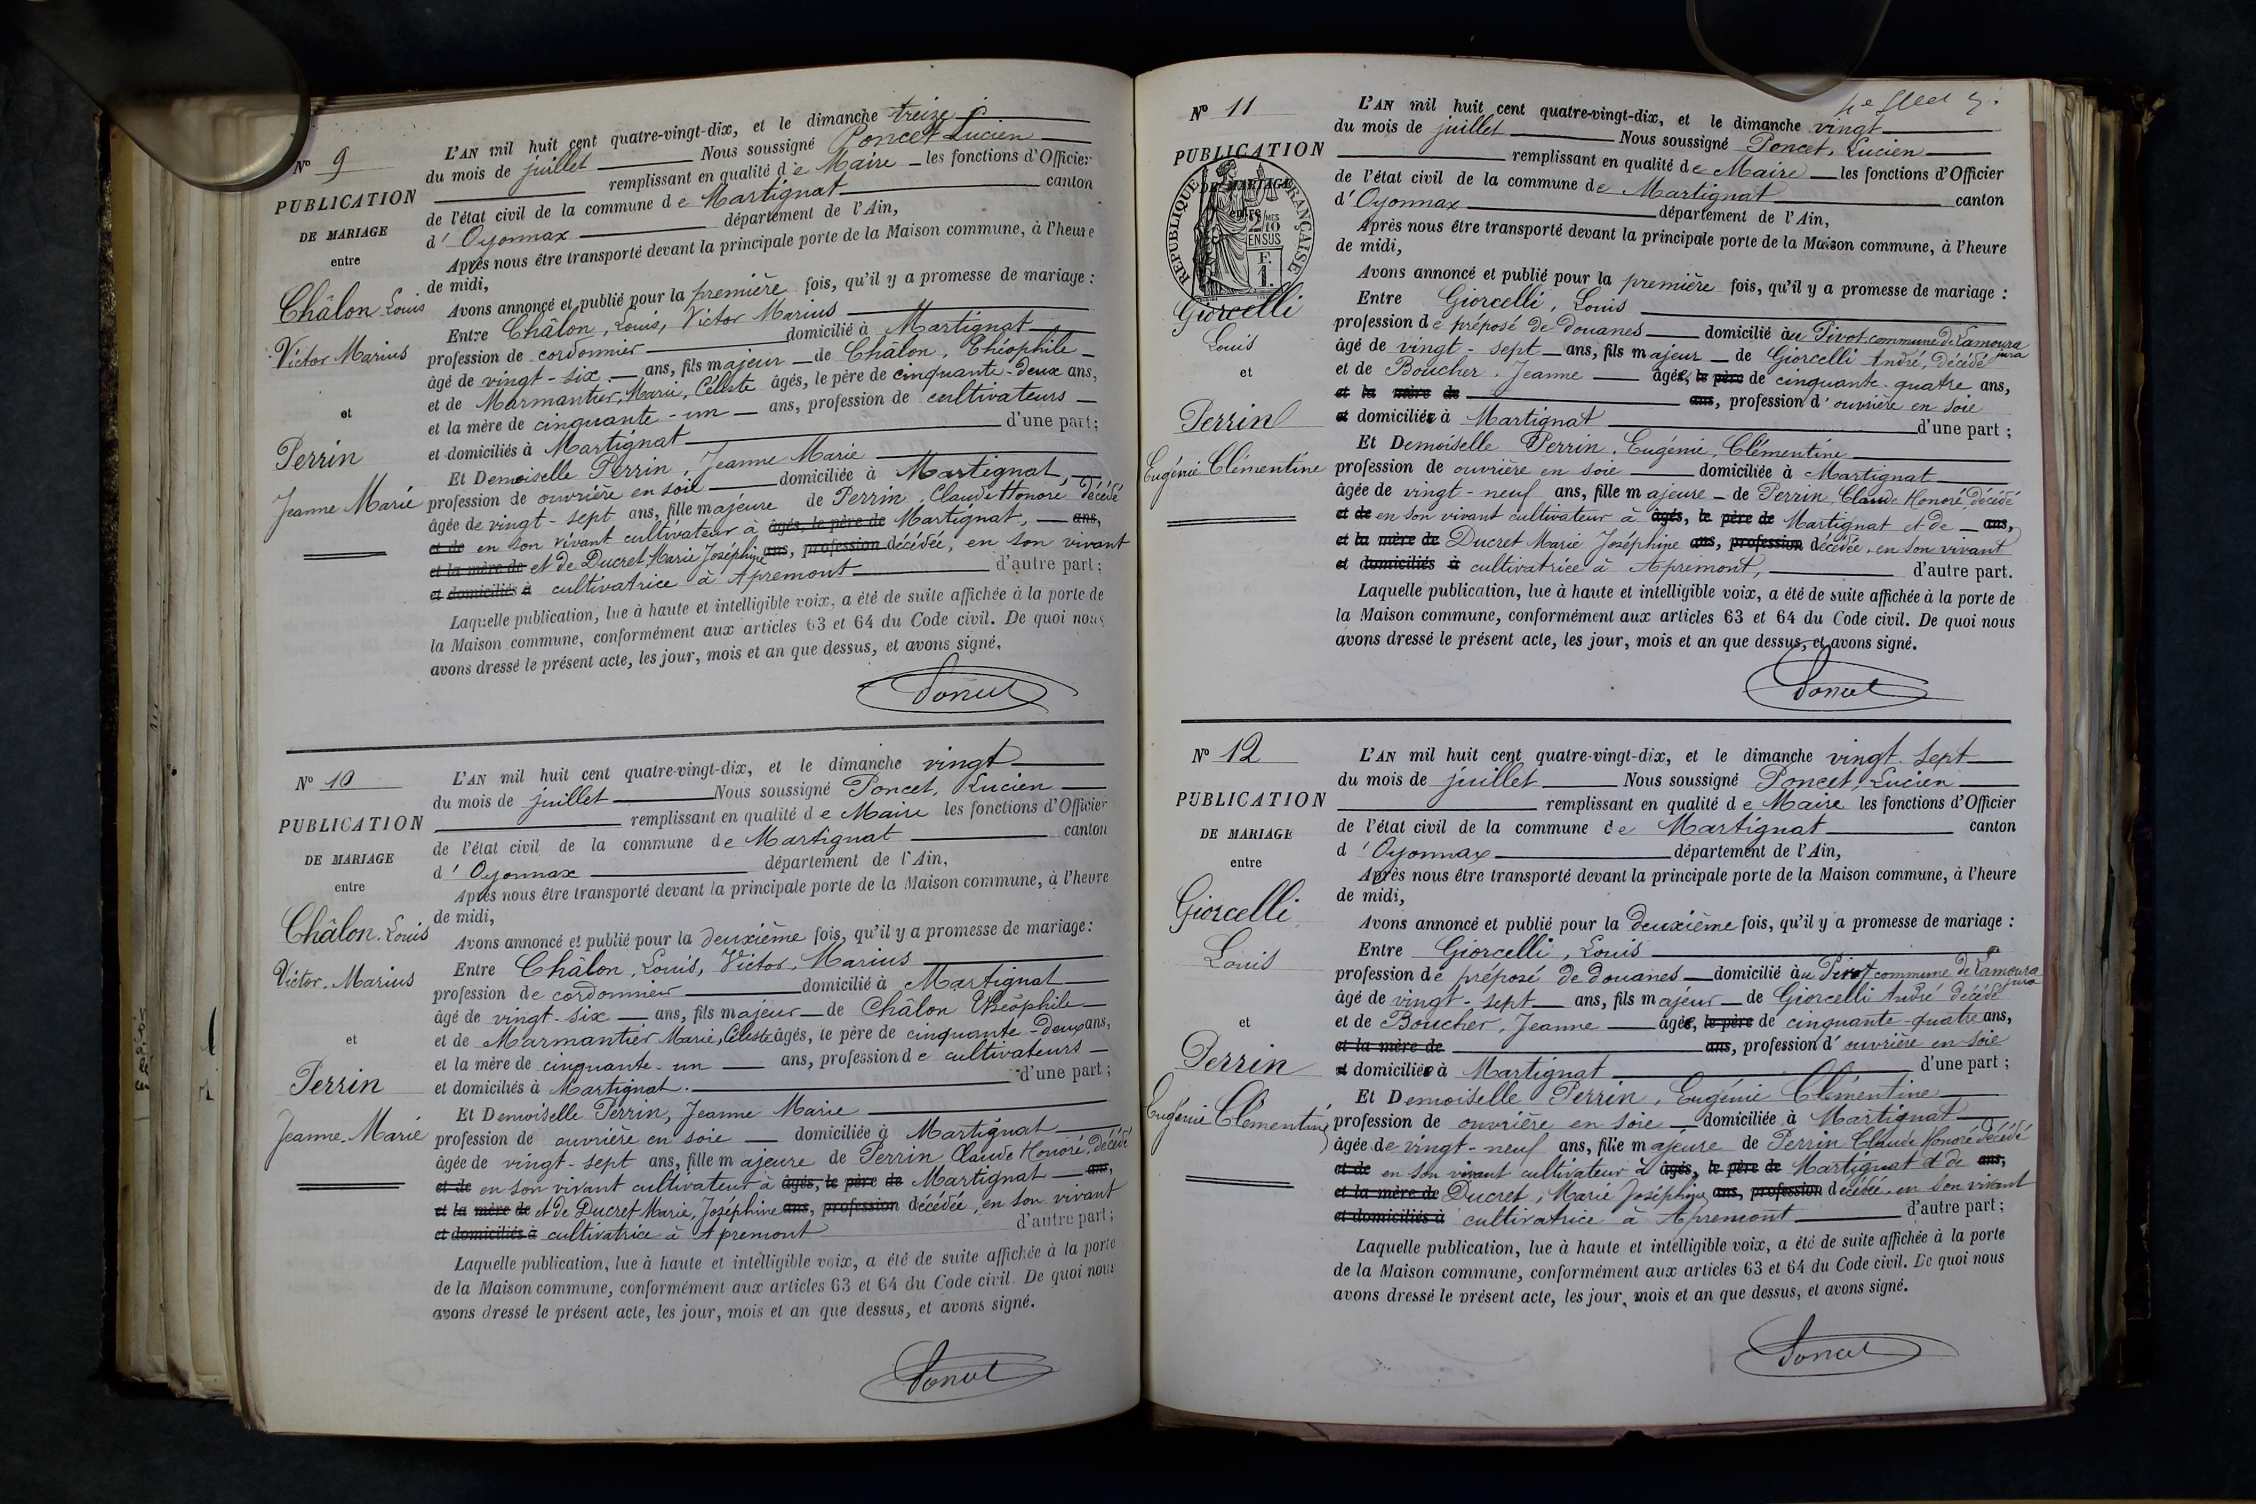 N° 9
PUBLICATION
DE MARIAGE
entre
Châlon Louis
Victor Marius
et
Perrin
Jeanne Marie
L'AN mil huit cent quatre-vingt-dix, et le dimanche treize
du mois de juillet Nous soussigné Poncet Lucien
remplissant en qualité de Maire les fonctions d'Officier
de l'état civil de la commune de Martignat canton
d'Oyonnax département de l'Ain,
Après nous être transporté devant la principale porte de la Maison commune, à l'heure
de midi,
Avons annoncé et publié pour la première fois, qu'il y a promesse de mariage :
Entre Châlon, Louis, Victor Marius
profession de cordonnier domicilié à Martignat
âgé de vingt-six ans, fils majeur de Châlon, Théophile
et de Marmantier, Marie, Céleste âgés, le père de cinquante-deux ans,
et la mère de cinquante-un ans, profession de cultivateurs
et domiciliés à Martignat d'une part;
Et Demoiselle Perrin, Jeanne Marie
profession de ouvrière en soie domiciliée à Martignat,
âgée de vingt-sept ans, fille majeure de Perrin, Claude Honoré décédé
et de en son vivant cultivateur à âgés, le père de Martignat, ans,
et la mère de et de Ducret Marie Joséphine ans, profession décédée, en son vivant
et domiciliés à cultivatrice à Apremont d'autre part;
Laquelle publication, lue à haute et intelligible voix, a été de suite affichée à la porte de
la Maison commune, conformément aux articles 63 et 64 du Code civil. De quoi nous
avons dressé le présent acte, les jour, mois et an que dessus, et avons signé.
Poncet
N° 10
PUBLICATION
DE MARIAGE
entre
Châlon, Louis
Victor, Marius
et
Perrin
Jeanne, Marie
L'AN mil huit cent quatre-vingt-dix, et le dimanche vingt
du mois de juillet Nous soussigné Poncet, Lucien
remplissant en qualité de Maire les fonctions d'Officier
de l'état civil de la commune de Martignat canton
d'Oyonnax département de l'Ain,
Après nous être transporté devant la principale porte de la Maison commune, à l'heure
de midi,
Avons annoncé et publié pour la deuxième fois, qu'il y a promesse de mariage:
Entre Châlon, Louis, Victor, Marius
profession de cordonnier domicilié à Martignat
âgé de vingt-six ans, fils majeur de Châlon Théophile
et de Marmantier Marie, Céleste âgés, le père de cinquante-deux ans,
et la mère de cinquante-un ans, profession de cultivateurs
et domiciliés à Martignat. d'une part;
Et Demoiselle Perrin, Jeanne Marie
profession de ouvrière en soie domiciliée à Martignat
âgée de vingt-sept ans, fille majeure de Perrin Claude Honoré, décédé
et de en son vivant cultivateur à âgés, le père de Martignat ans,
et la mère de et de Ducret Marie, Joséphine ans, profession décédée, en son vivant
et domiciliés à cultivatrice à Apremont d'autre part;
Laquelle publication, lue à haute et intelligible voix, a été de suite affichée à la porte
de la Maison commune, conformément aux articles 63 et 64 du Code civil. De quoi nous
avons dressé le présent acte, les jour, mois et an que dessus, et avons signé.
Poncet
N° 11
PUBLICATION
DE MARIAGE
entre
RÉPUBLIQUE FRANÇAISE
2/10 MES
EN SUS
F.
1.
Giorcelli
Louis
et
Perrin
Eugénie Clémentine
L'AN mil huit cent quatre-vingt-dix, et le dimanche vingt
du mois de juillet Nous soussigné Poncet, Lucien
remplissant en qualité de Maire les fonctions d'Officier
de l'état civil de la commune de Martignat canton
d'Oyonnax département de l'Ain,
Après nous être transporté devant la principale porte de la Maison commune, à l'heure
de midi,
Avons annoncé et publié pour la première fois, qu'il y a promesse de mariage :
Entre Giorcelli, Louis
profession de préposé de douanes domicilié au Pivot commune de Lamoura
jura
âgé de vingt-sept ans, fils majeur de Giorcelli André, décédé
et de Boucher, Jeanne âgés, le père de cinquante-quatre ans,
et la mère de ans, profession d'ouvrière en soie
et domiciliés à Martignat d'une part ;
Et Demoiselle Perrin, Eugénie, Clémentine
profession de ouvrière en soie domiciliée à Martignat
âgée de vingt-neuf ans, fille majeure de Perrin Claude Honoré, décédé
et de en son vivant cultivateur à âgés, le père de Martignat et de ans,
et la mère de Ducret Marie Joséphine ans, profession décédée, en son vivant
et domiciliés à cultivatrice à Apremont, d'autre part.
Laquelle publication, lue à haute et intelligible voix, a été de suite affichée à la porte de
la Maison commune, conformément aux articles 63 et 64 du Code civil. De quoi nous
avons dressé le présent acte, les jour, mois et an que dessus, et avons signé.
Poncet
N° 12
PUBLICATION
DE MARIAGE
entre
Giorcelli
Louis
et
Perrin
Eugénie Clémentine
L'AN mil huit cent quatre-vingt-dix, et le dimanche vingt-sept
du mois de juillet Nous soussigné Poncet, Lucien
remplissant en qualité de Maire les fonctions d'Officier
de l'état civil de la commune de Martignat canton
d'Oyonnax département de l'Ain,
Après nous être transporté devant la principale porte de la Maison commune, à l'heure
de midi,
Avons annoncé et publié pour la deuxième fois, qu'il y a promesse de mariage :
Entre Giorcelli, Louis
profession de préposé de douanes domicilié au Pivot commune de Lamoura
jura
âgé de vingt-sept ans, fils majeur de Giorcelli André décédé
et de Boucher, Jeanne âgés, le père de cinquante-quatre ans,
et la mère de ans, profession d'ouvrière en soie
et domiciliés à Martignat d'une part ;
Et Demoiselle Perrin, Eugénie Clémentine
profession de ouvrière en soie domiciliée à Martignat
âgée de vingt-neuf ans, fille majeure de Perrin Claude Honoré décédé
et de en son vivant cultivateur à âgés, le père de Martignat et de ans,
et la mère de Ducret, Marie Joséphine ans, profession décédée, en son vivant
et domiciliés à cultivatrice à Apremont d'autre part ;
Laquelle publication, lue à haute et intelligible voix, a été de suite affichée à la porte
de la Maison commune, conformément aux articles 63 et 64 du Code civil. De quoi nous
avons dressé le présent acte, les jour, mois et an que dessus, et avons signé.
Poncet